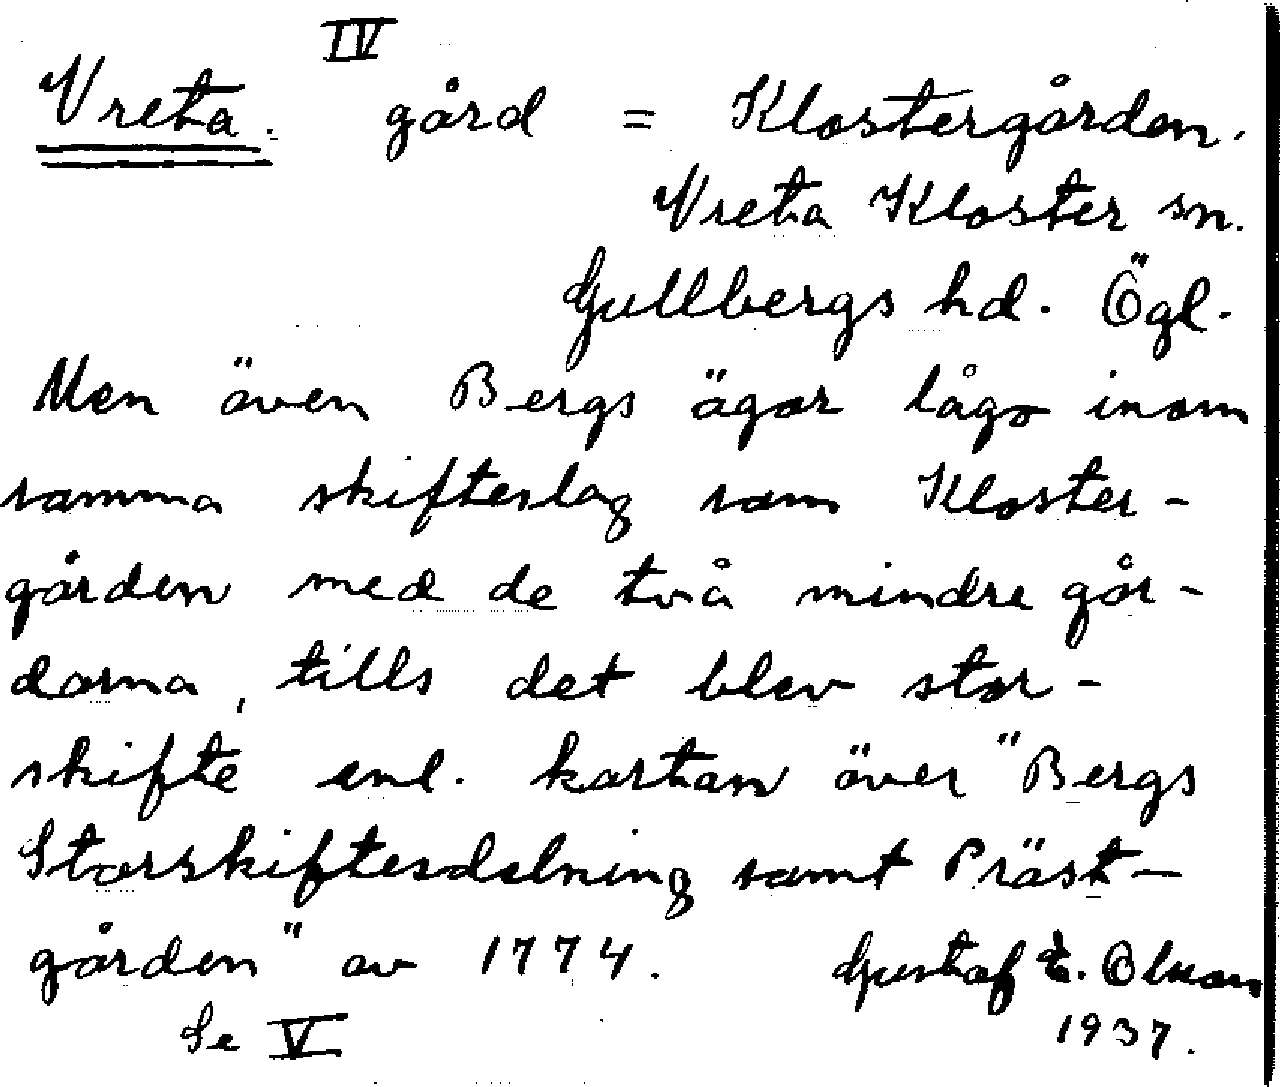 IV
Vreta. gård = Klostergården.
Vreta Kloster sn.
Gullbergs hd. Ögl.
Men även Bergs ägor lågo inom
samma skifteslag som Kloster-
gården med de två mindre går-
darna, tills det blev stor-
skifte enl. kartan över "Bergs
Storskiftesdelning samt Präst-
gården" av 1774. Gustaf
Se V 1937.